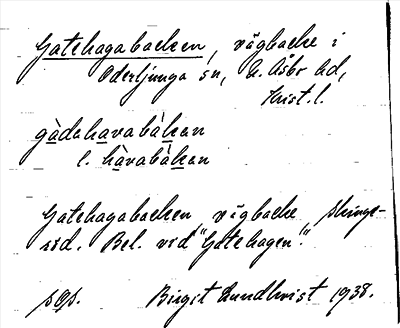 Gatehagabacken, vägbacke i
Oderljunga sn, N. Åsbo hd,
Krist. l.
gàdahavabàkan
l. hàvabàkan
Gatehagabacken, vägbacke, Skinge-
röd. Bel. vid "Gatehagen".
Birgit Lundkvist 1938.